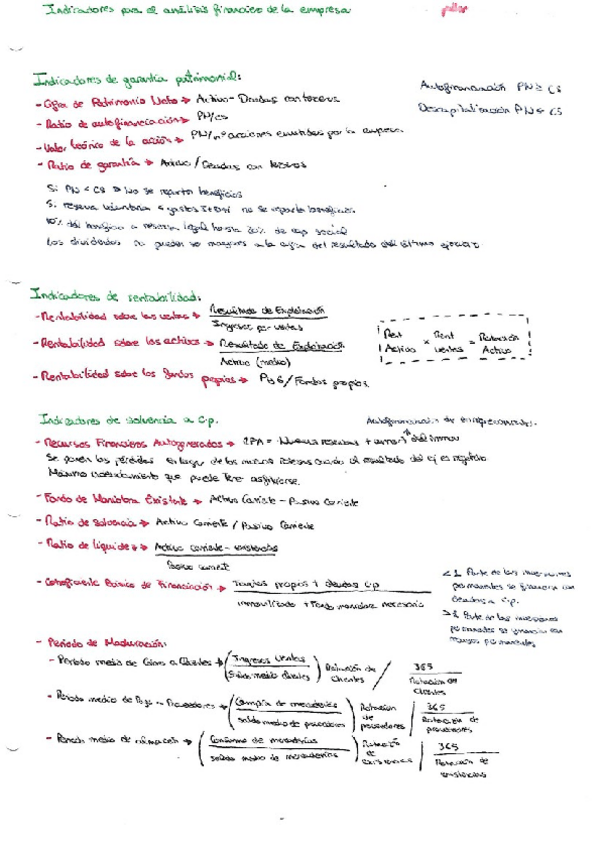 Indicadores para el análisis financiero de la empresa
Indicadores de garantía patrimonial:
Autofinanciación PN ≥ CS
Descapitalización PN < CS
- Cifra de Patrimonio Neto → Activo - Deudas con terceros
- Ratio de autofinanciación → PN/CS
- Valor teórico de la acción → PN/nº acciones emitidas por la empresa
- Ratio de garantía → Activo / Deudas con terceros
Si PN < CS → No se reparten beneficios
Si reserva voluntaria < gastos I+D+i no se reparte beneficios.
10% del beneficio a reserva legal hasta 20% de cap social
Los dividendos no pueden ser mayores a la cifra del resultado del último ejercicio
Indicadores de rentabilidad:
- Rentabilidad sobre las ventas → Resultado de Explotación
Ingresos por ventas
- Rentabilidad sobre los activos → Resultado de Explotación
Activo (medio)
Rent Activo × Rent ventas = Rotación Activo
- Rentabilidad sobre los fondos propios → PyG / Fondos propios
Indicadores de solvencia a c.p.
Autofinanciación de
- Recursos Financieros Autogenerados → RFA = Nuevas reservas + amort del inmov
Se ponen las pérdidas en lugar de las nuevas reservas cuando el resultado del ej es negativo
Máximo endeudamiento que puede
- Fondo de Maniobra Existente → Activo Corriente - Pasivo Corriente
- Ratio de solvencia → Activo Corriente / Pasivo Corriente
- Ratio de liquidez → Activo corriente - existencias
Pasivo corriente
- Coeficiente Básico de Financiación → Fondos propios + deudas
inmovilizado + Fondo maniobra necesario
< 1 Parte de las inversiones
permanentes se financia con
deudas a c.p.
> 1 Parte de las inversiones
se financia con
recursos permanentes
- Periodo de Maduración:
- Periodo medio de Cobro a Clientes → (Ingresos Ventas / Saldo medio clientes) Rotación de clientes / 365 / Rotación de clientes
- Periodo medio de Pago - Proveedores → (Compra de mercaderías / saldo medio de proveedores) Rotación de proveedores | 365 / Rotación de proveedores
- Periodo medio de almacén → (Consumo de mercaderías / saldo medio de mercaderías) Rotación de existencias | 365 / Rotación de existencias